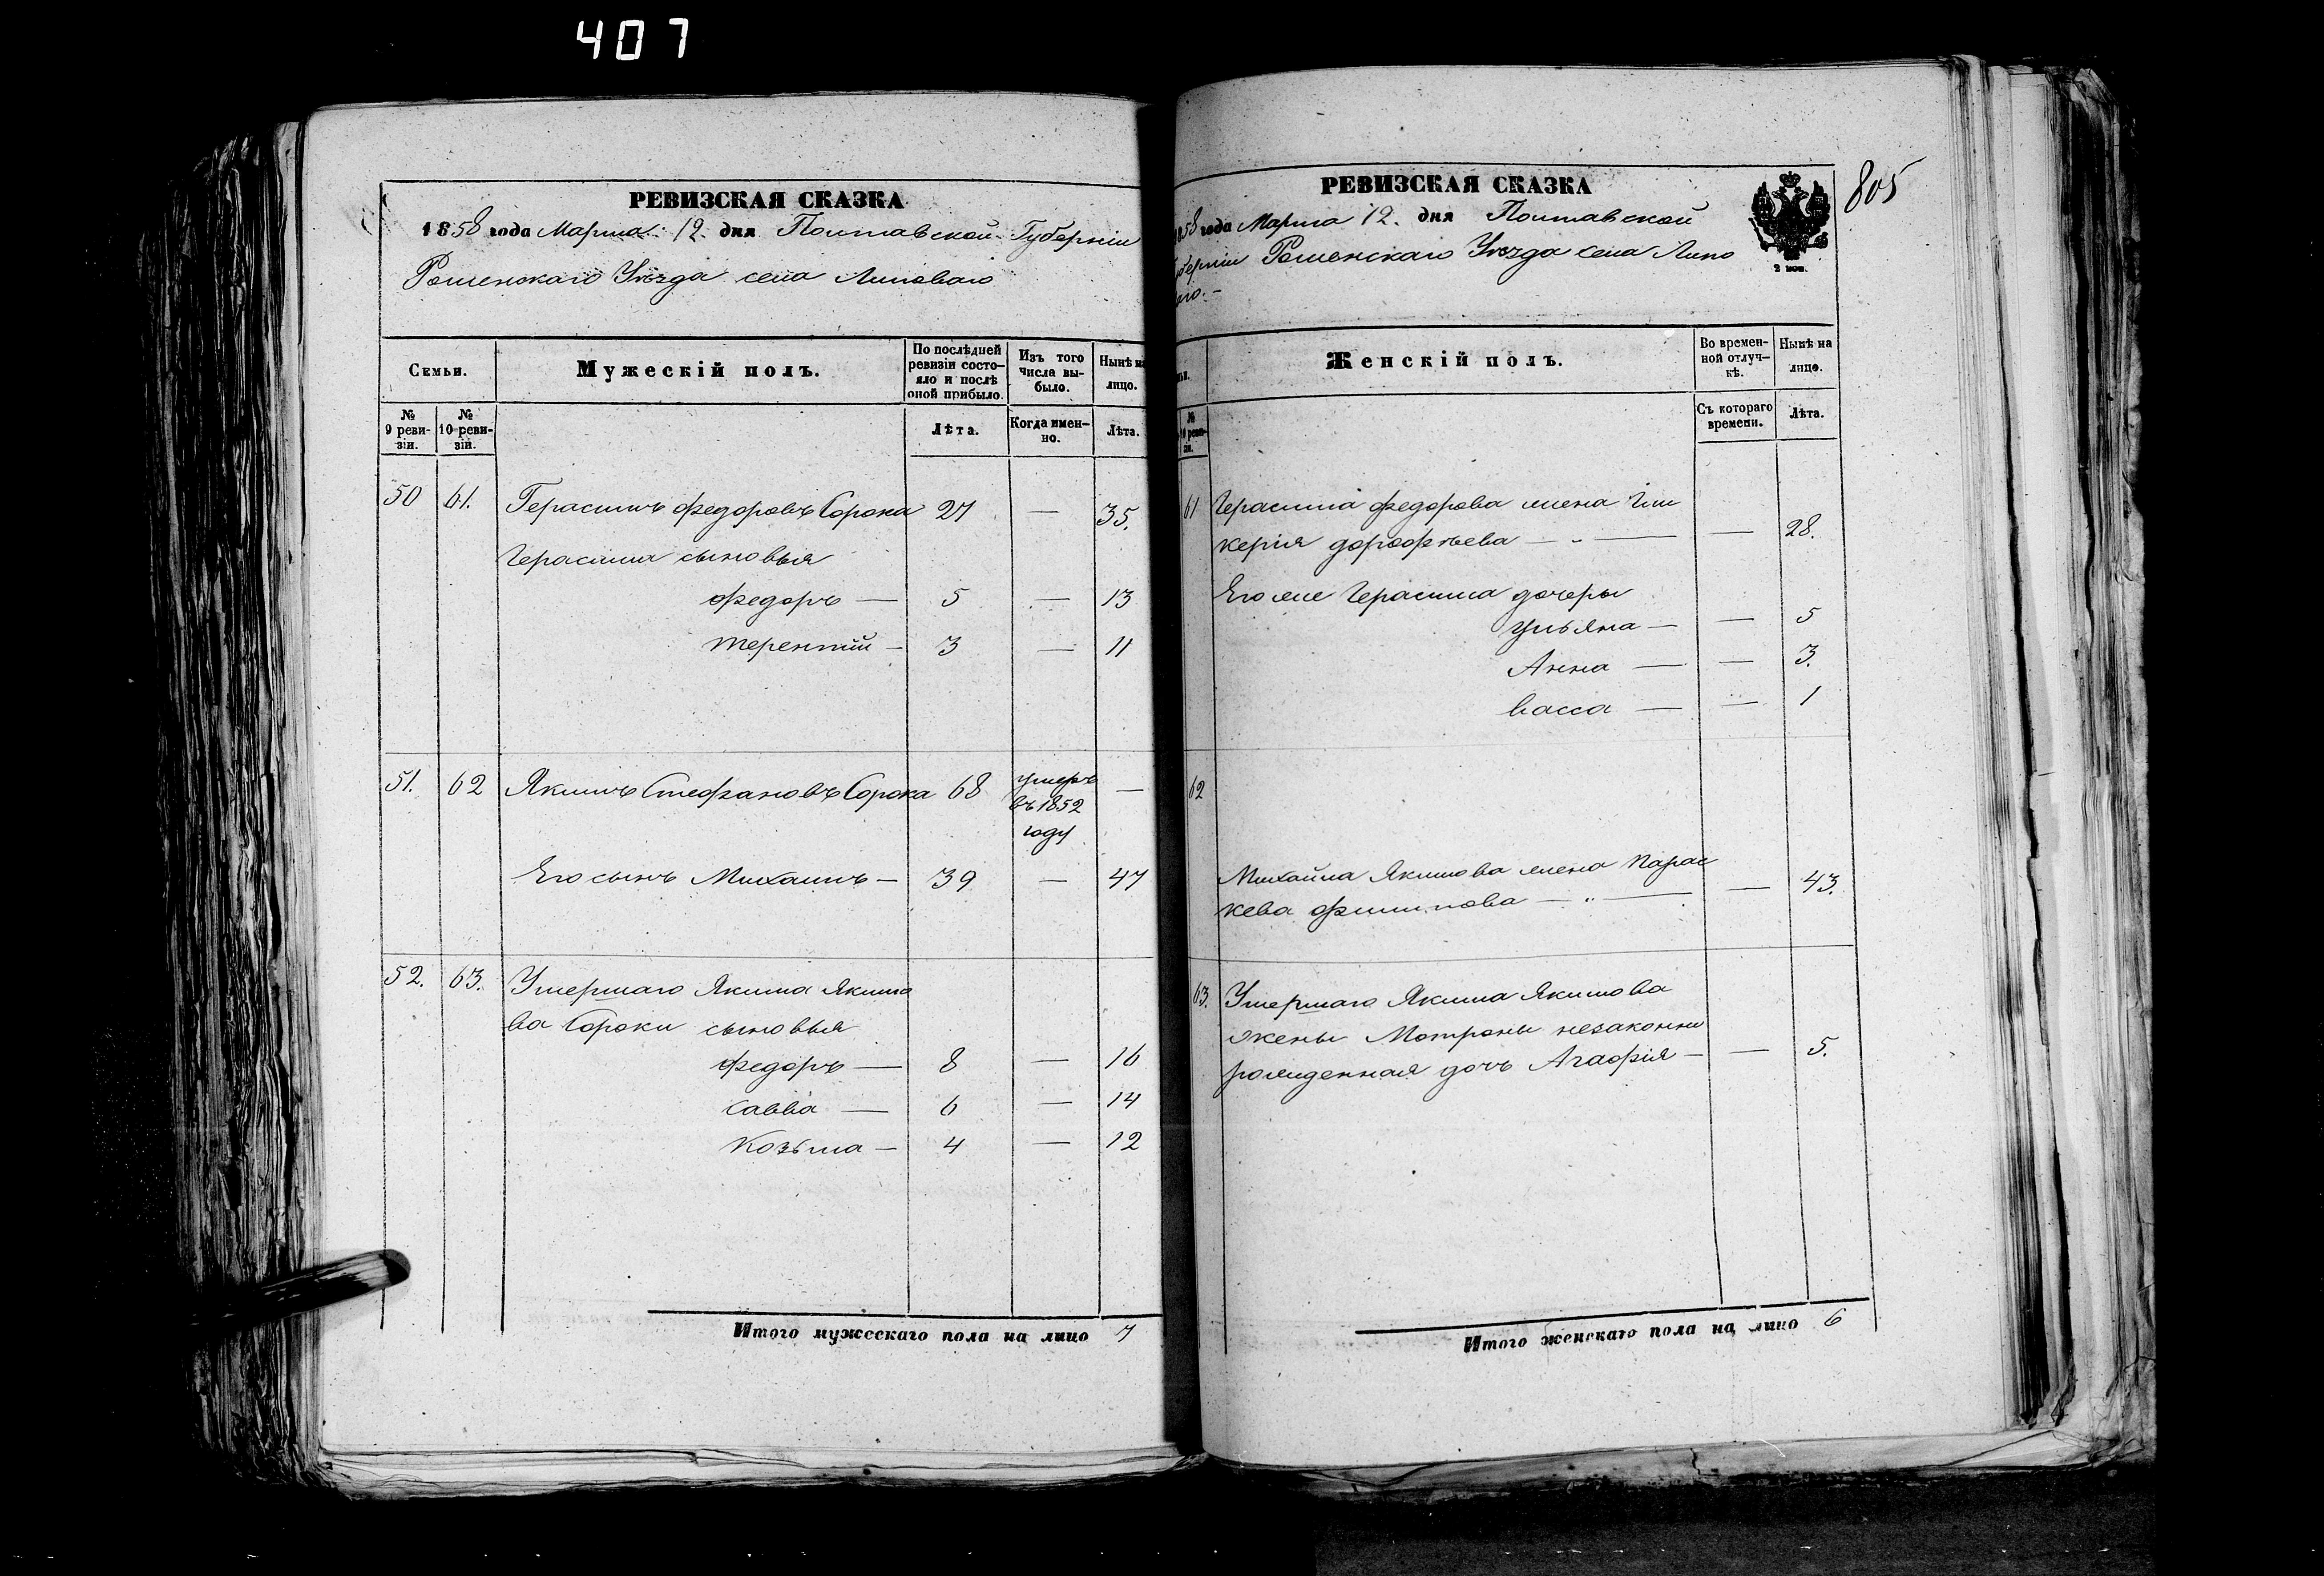 407
РЕВИЗСКАЯ СКАЗКА
1858 года Марта 12 дня Полтавской Губерніи
Роменскаго Уѣзда села Липоваго
Семьи.
Мужескій полъ.
По послѣдней ревизіи состояло и послѣ оной прибыло.
Изъ того числа выбыло.
Нынѣ на лицо.
№ 9 ревизіи.
№ 10 ревизіи.
Лѣта.
Когда именно.
Лѣта.
50 61. Герасимъ Федоровъ Сорока 27 — 35.
Герасима сыновья
Федоръ — 5 — 13
Терентій — 3 — 11
51. 62 Якимъ Стефановъ Сорока 68 умеръ въ 1852 году —
Его сынъ Михаилъ — 39 — 47
52. 63. Умершаго Якима Якимо
ва Сороки сыновья
Федоръ — 8 — 16
Савва — 6 — 14
Козьма — 4 — 12
Итого мужескаго пола на лицо 7
РЕВИЗСКАЯ СКАЗКА
805
1858 года Марта 12. дня Полтавской
Губерніи Роменскаго Уѣзда села Липо
ваго. —
2 коп.
Женскій полъ.
Во временной отлучкѣ.
Нынѣ на лицо.
№ 10 ревизіи.
Съ котораго времени.
Лѣта.
61 Герасима Федорова жена Гли
керія Дорофѣева — " — — 28.
Его же Герасима дочеры
Ульяна — — 5
Анна — — 3.
Васса — — 1
62
Михайла Якимова жена Парас
кева Филипова — " — — 43.
63. Умершаго Якима Якимова
жены Мотроны незаконно
рожденная дочь Агафія — — 5.
Итого женскаго пола на лицо 6